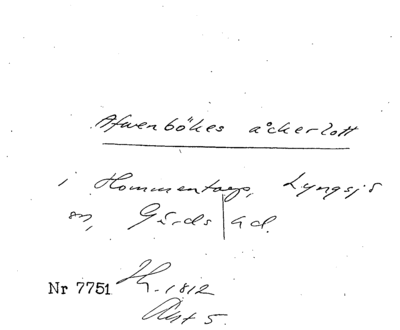 Afwenbökes åckerlott
i Hommentorp, Lyngsjö
sn, Gärds hd.
Nr 7751 H. 1812
Akt 5.